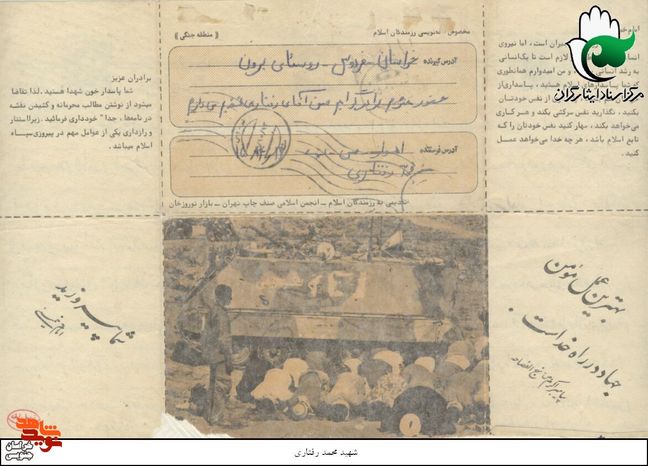 مخصوص نامه‌نویسی رزمندگان اسلام
« منطقه جنگی »
آدرس گیرنده
خراسان - فردوس - روستای برون
آدرس فرستنده
اهواز
رفتاری
تقدیمی به رزمندگان اسلام - انجمن اسلامی صنف چاپ تهران - بازار نوروزخان
برادران عزیز
شما پاسدار خون شهدا هستید. لذا تقاضا
میشود از نوشتن مطالب محرمانه و کشیدن نقشه
در نامه‌ها، جدا" خودداری فرمائید. زیرا استتار
و رازداری یکی از عوامل مهم در پیروزی سپاه
اسلام میباشد.
امام
است، اما نیروی
لازم است تا یک انسانی
به رشد انسانی
و من امیدوارم همانطوری
هستید، پاسداری از
از نفس خودتان
بکنید، نگذارید نفس سرکشی بکند و هر کاری
می‌خواهد بکند، مهار کنید نفس خودتان را که
تابع اسلام باشد، هر چه خدا می‌خواهد عمل
کنید.
مرکز اسناد ایثارگران
شما پیروزید
امام خمینی
بهترین عمل مؤمن
جهاد در راه خداست
پیامبر اکرم
نهج الفصاحه
نوید شاهد
خراسان جنوبی
شهید محمد رفتاری